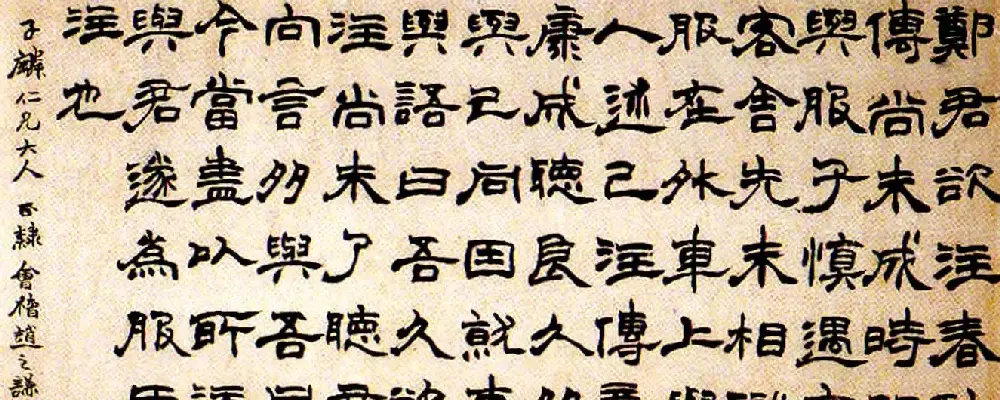 鄭君欲注春
傳尚未成時
與服子慎遇
客舍先未相
服在外車上
人述己注傳
康成聽良久
與己同因就
與語曰吾久
注尚未了聽
向言多與吾
今當盡以所
與君遂為服
注也
子麟仁兄大人 正隸 會稽趙之謙